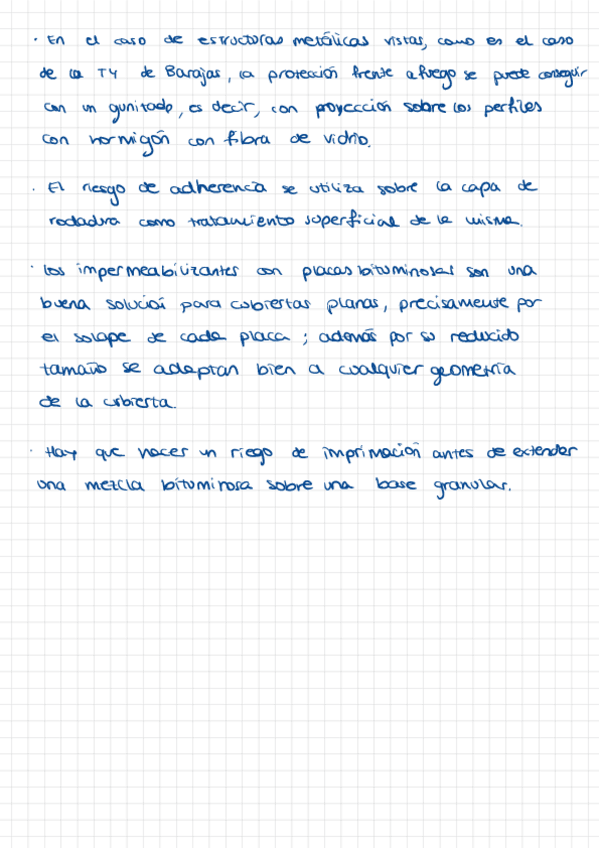 · En el caso de estructuras metálicas vistas, como es el caso
de la T4 de Barajas, la protección frente a fuego se puede conseguir
con un gunitado, es decir, con proyección sobre los perfiles
con hormigón con fibra de vidrio.
· El riesgo de adherencia se utiliza sobre la capa de
rodadura como tratamiento superficial de la misma.
· Los impermeabilizantes con placas bituminosas son una
buena solución para cubiertas planas, precisamente por
el solape de cada placa; además por su reducido
tamaño se adaptan bien a cualquier geometría
de la cubierta.
· Hay que hacer un riego de imprimación antes de extender
una mezcla bituminosa sobre una base granular.